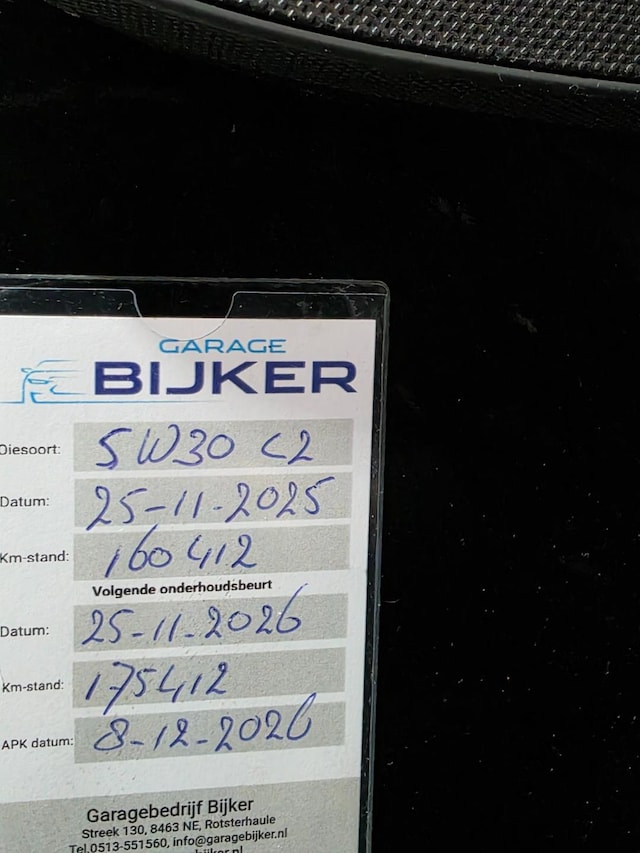 GARAGE
BIJKER
Oiesoort: 5W30 C2
Datum: 25-11-2025
Km-stand: 160412
Volgende onderhoudsbeurt
Datum: 25-11-2026
Km-stand: 175412
APK datum: 8-12-2026
Garagebedrijf Bijker
Streek 130, 8463 NE, Rotsterhaule
Tel.0513-551560, info@garagebijker.nl
bijker.nl